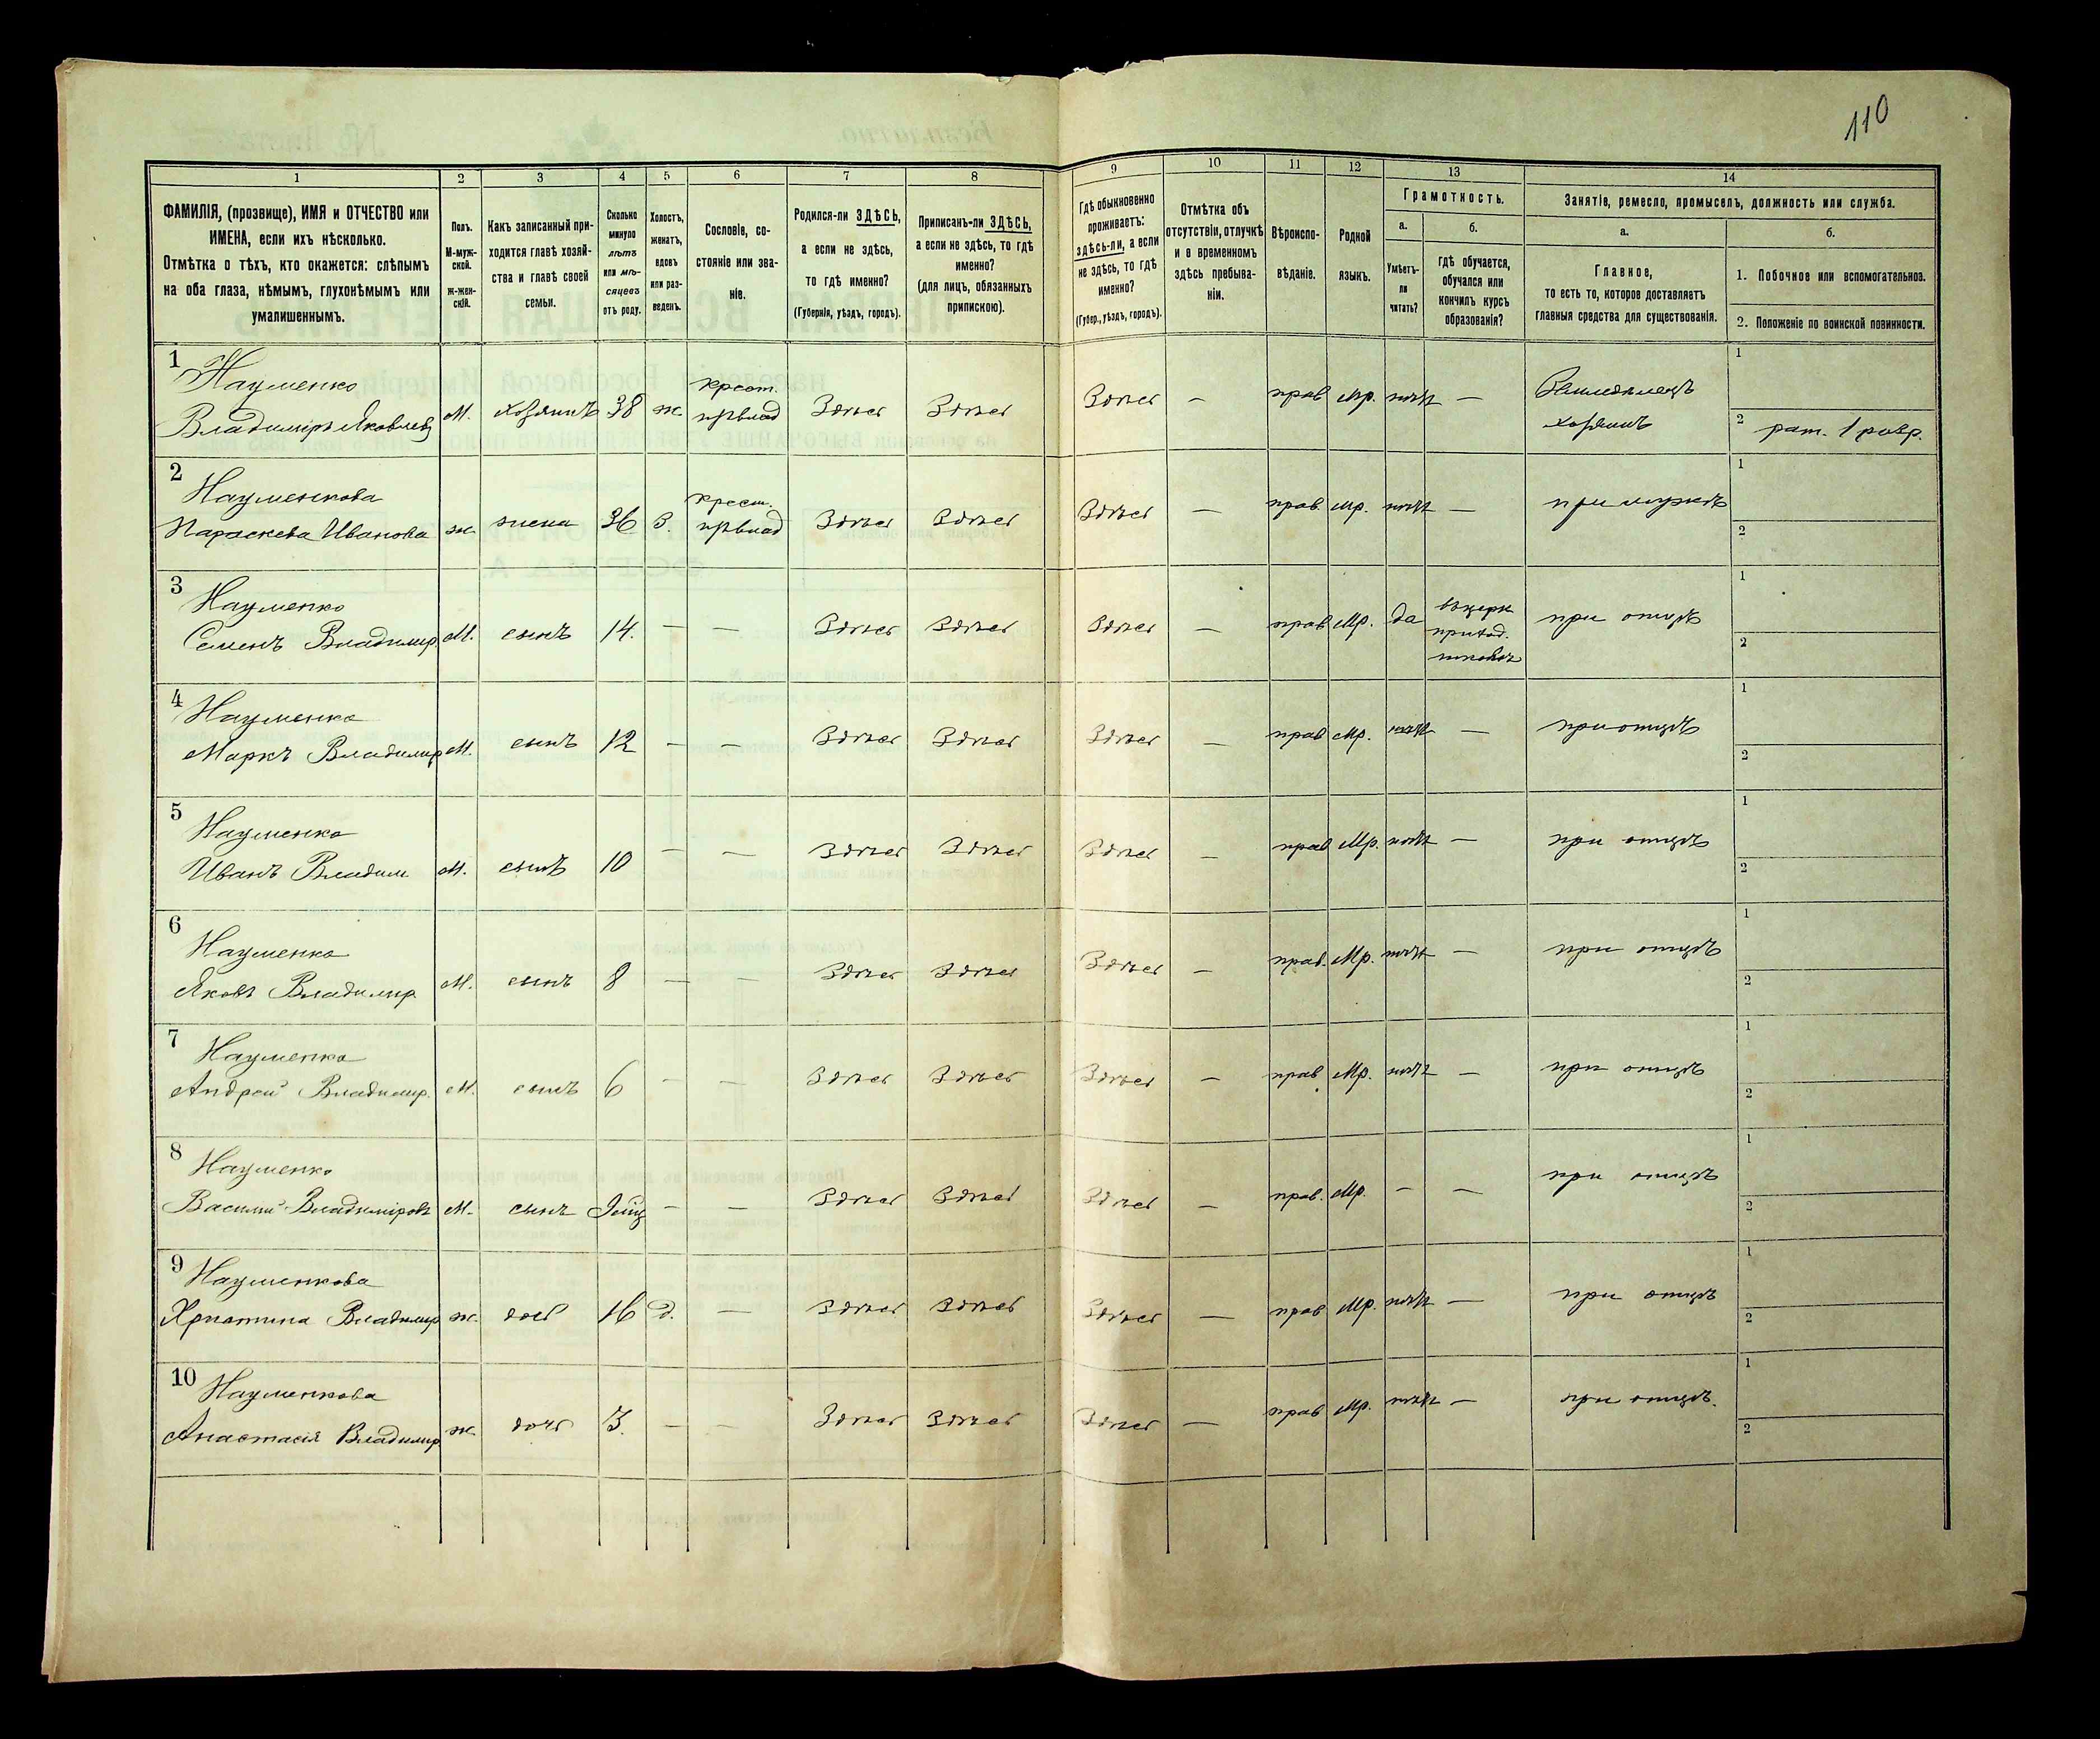 110
1 2 3 4 5 6 7 8 9 10 11 12 13 14
ФАМИЛІЯ, (прозвище), ИМЯ и ОТЧЕСТВО или
ИМЕНА, если ихъ нѣсколько.
Отмѣтка о тѣхъ, кто окажется: слѣпымъ
на оба глаза, нѣмымъ, глухонѣмымъ или
умалишеннымъ.
Полъ.
М-муж-
ской.
Ж-жен-
скій.
Какъ записанный при-
ходится главѣ хозяй-
ства и главѣ своей
семьи.
Сколько
минуло
лѣтъ
или мѣ-
сяцевъ
отъ роду.
Холостъ,
женатъ,
вдовъ
или раз-
веденъ.
Сословіе, со-
стояніе или зва-
ніе.
Родился-ли ЗДѢСЬ,
а если не здѣсь,
то гдѣ именно?
(Губернія, уѣздъ, городъ).
Приписанъ-ли ЗДѢСЬ,
а если не здѣсь, то гдѣ
именно?
(для лицъ, обязанныхъ
припискою).
Гдѣ обыкновенно
проживаетъ:
здѣсь-ли, а если
не здѣсь, то гдѣ
именно?
(Губер., уѣздъ, городъ).
Отмѣтка объ
отсутствіи, отлучкѣ
и о временномъ
здѣсь пребыва-
ніи.
Вѣроиспо-
вѣданіе.
Родной
языкъ.
Грамотность.
а.
Умѣетъ-
ли
читать?
б.
гдѣ обучается,
обучался или
кончилъ курсъ
образованія?
Занятіе, ремесло, промыселъ, должность или служба.
а.
Главное,
то есть то, которое доставляетъ
главныя средства для существованія.
б.
1. Побочное или вспомогательное.
2. Положеніе по воинской повинности.
1 Науменко крест. Земледѣлецъ 1
Владиміръ Яковлев М. хозяинъ 38 ж. Здѣсь Здѣсь Здѣсь — прав Мр. нѣтъ — хозяинъ 2 рат. 1 разр.
2 Науменкова крест. 1
Параскева Иванова ж. жена 36 З. Здѣсь Здѣсь Здѣсь — прав. Мр. нѣтъ — при мужѣ 2
3 Науменко въ церк 1
Семенъ Владимир. М. сынъ 14. — — Здѣсь Здѣсь Здѣсь — прав Мр. да приход. при отцѣ 2
школѣ
4 Науменко 1
Маркъ Владимир М. сынъ 12 — — Здѣсь Здѣсь Здѣсь — прав Мр. нѣтъ — при отцѣ 2
5 Науменко 1
Иванъ Владим М. сынъ 10 — — Здѣсь Здѣсь Здѣсь — прав Мр. нѣтъ — при отцѣ 2
6 Науменко 1
Яковъ Владимир М. сынъ 8 — — Здѣсь Здѣсь Здѣсь — прав. Мр. нѣтъ — при отцѣ 2
7 Науменко 1
Андрей Владимир. М. сынъ 6 — — Здѣсь Здѣсь Здѣсь — прав Мр. нѣтъ — при отцѣ 2
8 Науменко 1
Василий Владиміровъ М. сынъ — — Здѣсь Здѣсь Здѣсь — прав. Мр. — — при отцѣ 2
9 Науменкова 1
Христина Владимир ж. дочь 16 д. — Здѣсь Здѣсь Здѣсь — прав Мр. нѣтъ — при отцѣ 2
10 Науменкова 1
Анастасія Владимир ж. дочь 3. — — Здѣсь Здѣсь Здѣсь — прав Мр. нѣтъ — при отцѣ. 2